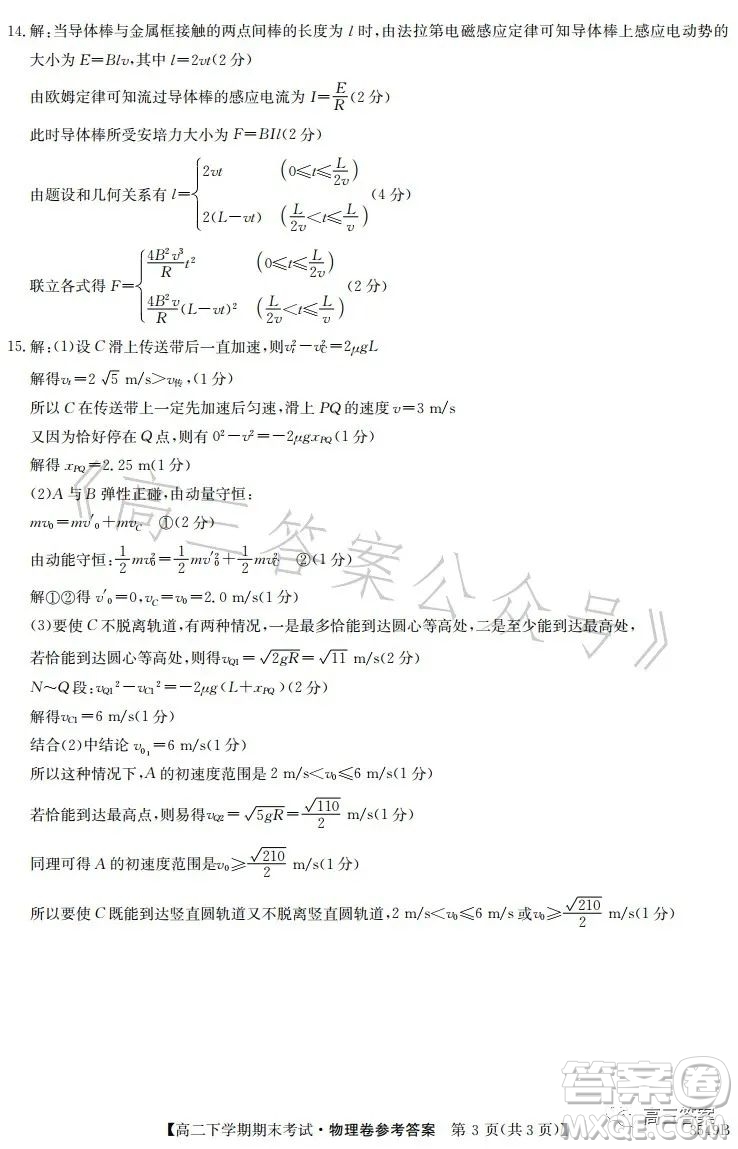 14. 解:当导体棒与金属框接触的两点间棒的长度为 l 时,由法拉第电磁感应定律可知导体棒上感应电动势的
大小为 E=Blv,其中 l=2vt(2 分)
由欧姆定律可知流过导体棒的感应电流为 I=E/R(2 分)
此时导体棒所受安培力大小为 F=BIl(2 分)
由题设和几何关系有 l={2vt (0≤t≤L/2v)
2(L-vt) (L/2v<t≤L/v) (4 分)
联立各式得 F={4B²v³/R t² (0≤t≤L/2v)
4B²v/R (L-vt)² (L/2v<t≤L/v) (2 分)
15. 解:(1)设 C 滑上传送带后一直加速,则vₜ²-v_C²=2μgL
解得vₜ=2√5 m/s>v传,(1 分)
所以 C 在传送带上一定先加速后匀速,滑上 PQ的速度 v=3 m/s
又因为恰好停在 Q 点,则有 0²-v²=-2μgx_PQ(1 分)
解得 x_PQ=2.25 m(1 分)
(2)A 与 B 弹性正碰,由动量守恒:
mv₀=mv′₀+mv_C ①(2 分)
由动能守恒:1/2 mv₀²=1/2 mv′₀²+1/2 mv_C² ②(2 分)
解①②得 v′₀=0,v_C=v₀=2.0 m/s(1 分)
(3)要使 C 不脱离轨道,有两种情况,一是最多恰能到达圆心等高处,二是至少能到达最高处,
若恰能到达圆心等高处,则得v_Q1=√2gR=√11 m/s(2 分)
N～Q 段:v_Q1²-v_C1²=-2μg(L+x_PQ)(2 分)
解得v_C1=6 m/s(1 分)
结合(2)中结论 v₀₁=6 m/s(1 分)
所以这种情况下,A 的初速度范围是 2 m/s<v₀≤6 m/s(1 分)
若恰能到达最高点,则易得v_Q2=√5gR=√110/2 m/s(1 分)
同理可得 A 的初速度范围是v₀≥√210/2 m/s(1 分)
所以要使 C 既能到达竖直圆轨道又不脱离竖直圆轨道,2 m/s<v₀≤6 m/s 或v₀≥√210/2 m/s(1 分)
《高三答案公众号》
答案圈
高三答案
【高二下学期期末考试·物理卷参考答案 第 3 页(共 3 页)】 3549B
MXQE.COM